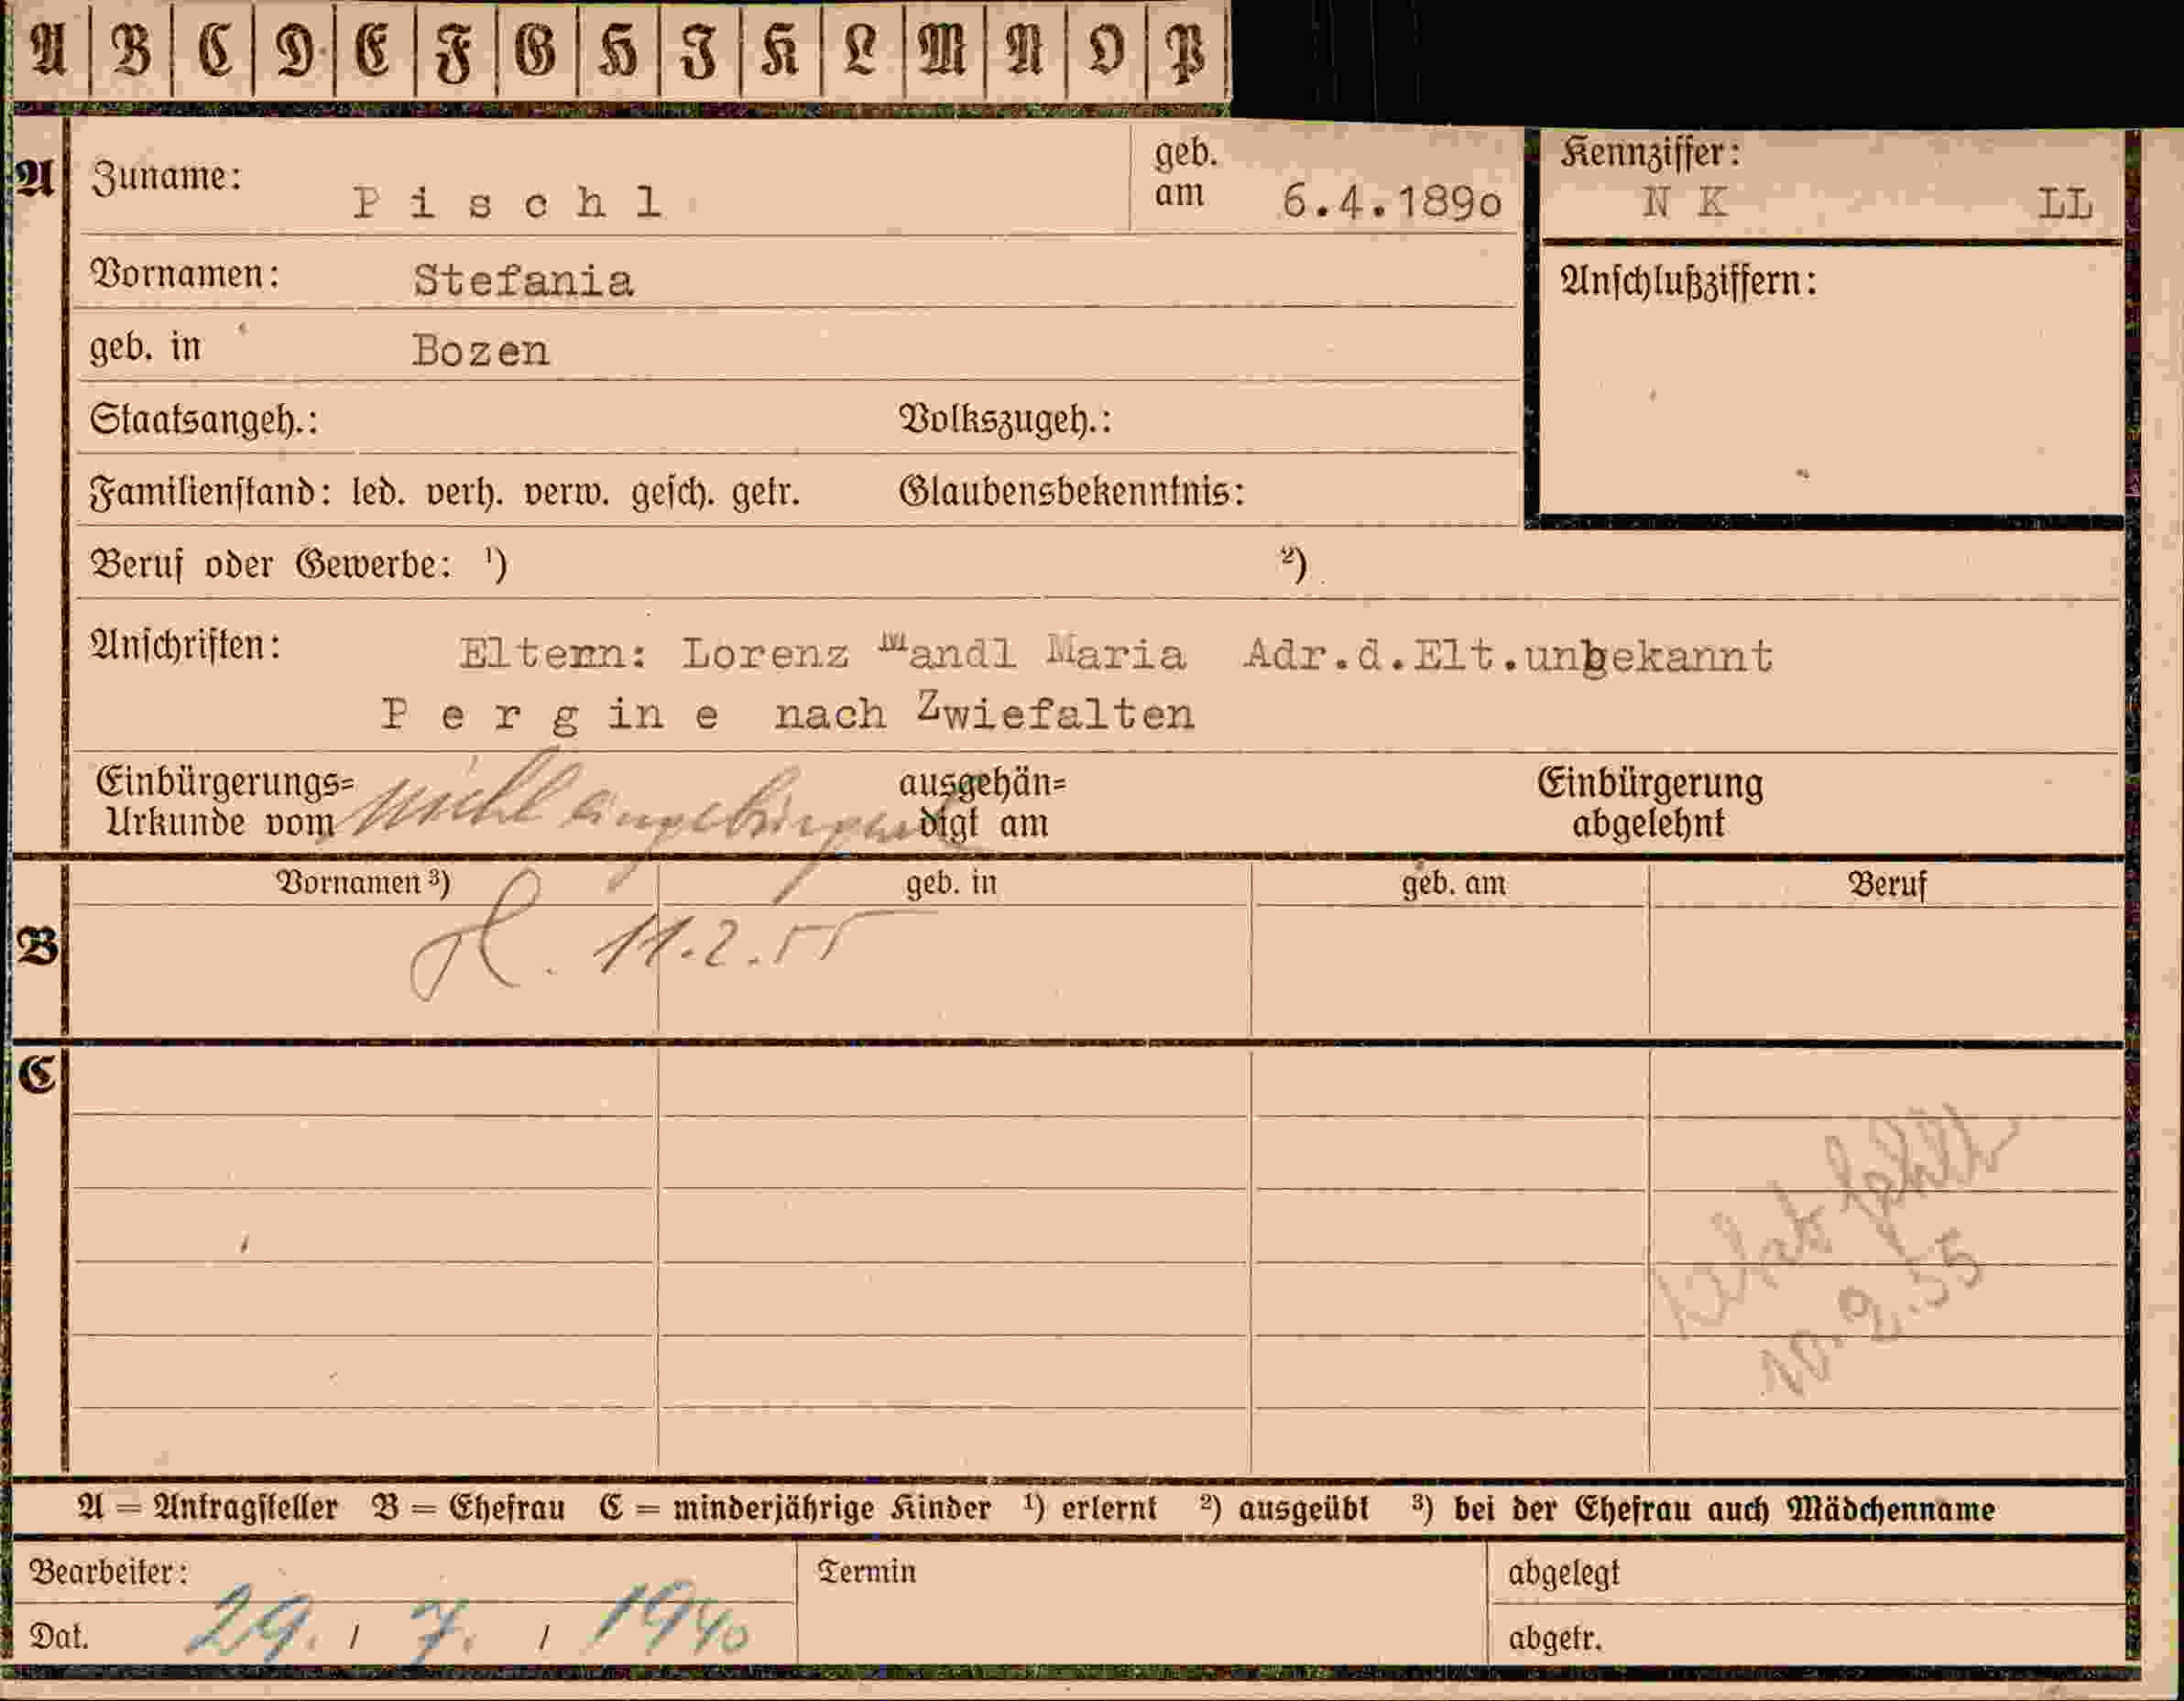 A B C D E F G H I K L M N O P
A Zuname: Pischl geb. am 6.4.1890 Kennziffer: N K LL
Vornamen: Stefania Anschlußziffern:
geb. in Bozen
Staatsangeh.: Volkszugeh.:
Familienstand: led. verh. verw. gesch. getr. Glaubensbekenntnis:
Beruf oder Gewerbe: ¹) ²)
Anschriften: Eltern: Lorenz Mandl Maria Adr.d.Elt.unbekannt
Pergine nach Zwiefalten
Einbürgerungs= ausgehän= Einbürgerung
Urkunde vom nicht eingebürgert digt am abgelehnt
Vornamen ³) geb. in geb. am Beruf
B 11.2.55
C
fehlt
10.2.55
A = Antragsteller B = Ehefrau C = minderjährige Kinder ¹) erlernt ²) ausgeübt ³) bei der Ehefrau auch Mädchenname
Bearbeiter: Termin abgelegt
Dat. 29. / 7. / 1940 abgetr.